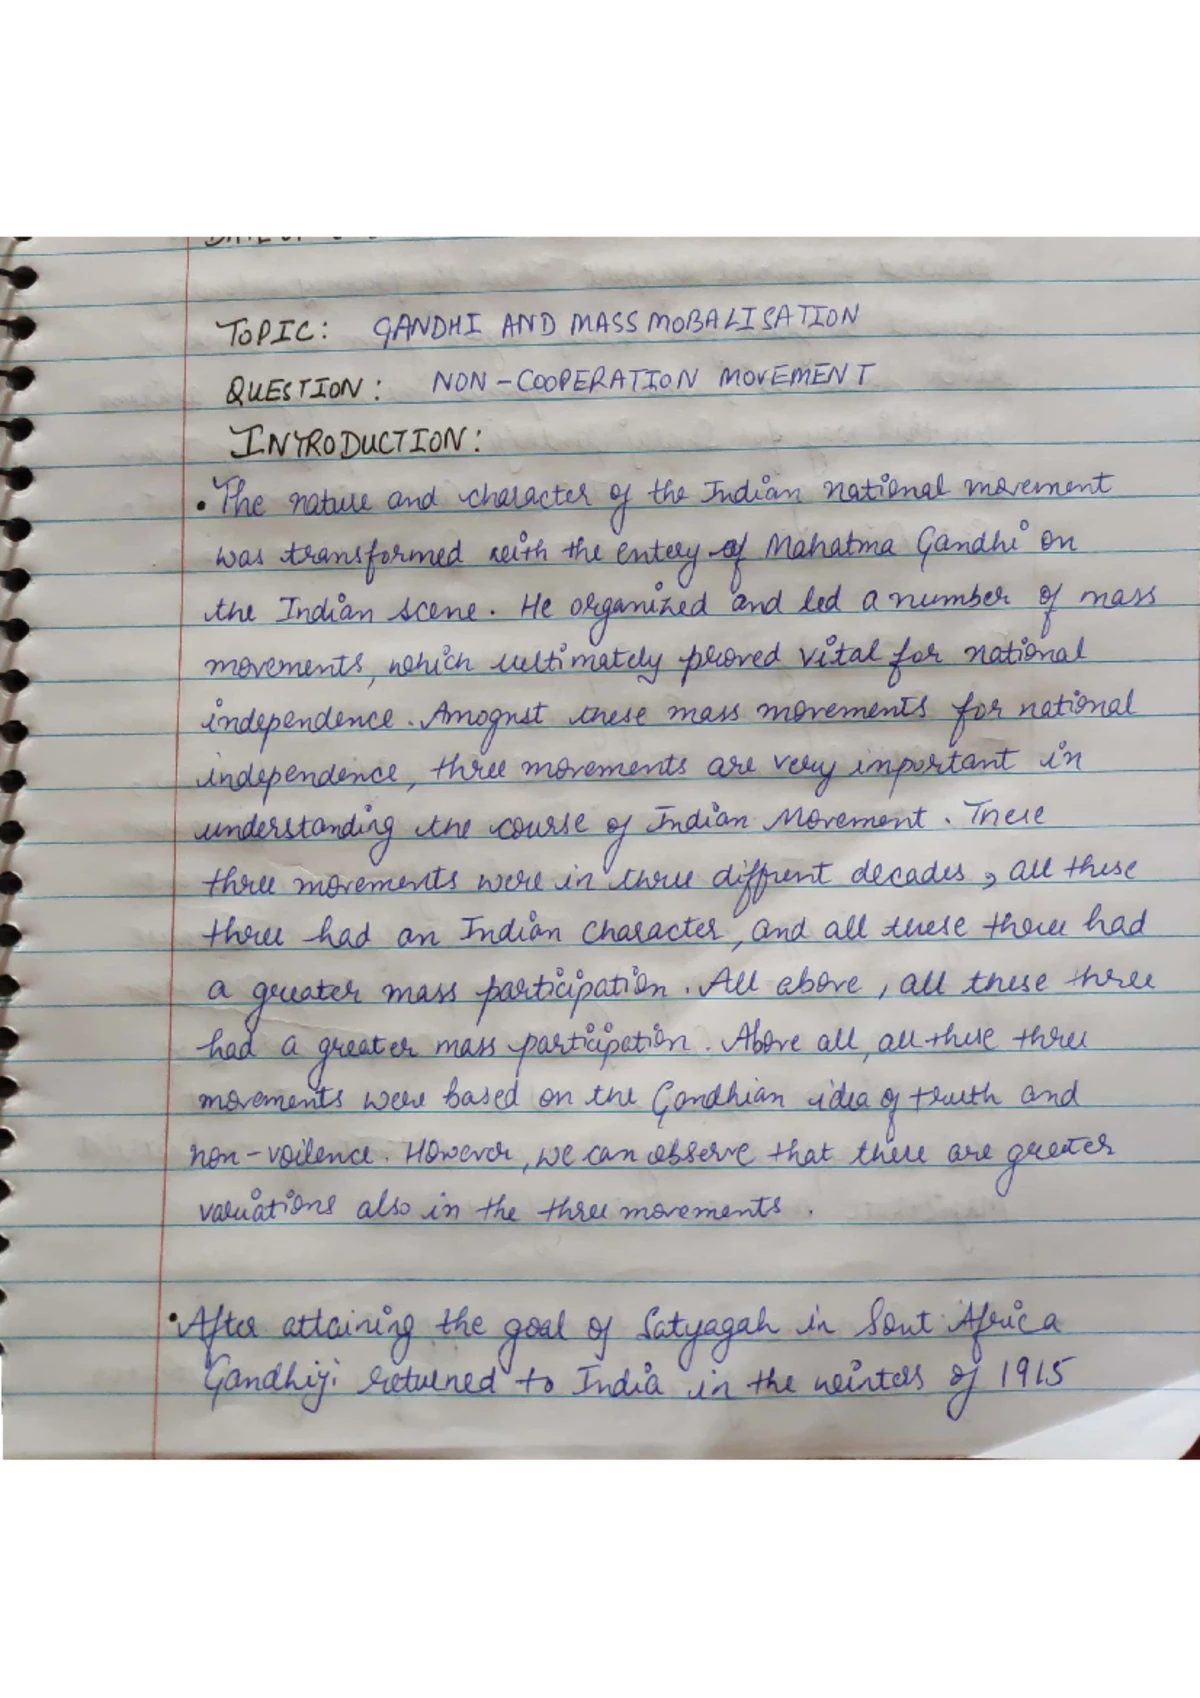 TOPIC: GANDHI AND MASS MOBALISATION
QUESTION: NON-COOPERATION MOVEMENT
INTRODUCTION:
• The nature and character of the Indian national movement
was transformed with the entery of Mahatma Gandhi on
the Indian scene. He organized and led a number of mass
movements, which ultimately proved vital for national
independence. Amognst these mass movements for national
independence, three movements are very important in
understanding the course of Indian Movement. These
three movements were in three diffrent decades, all these
three had an Indian character, and all these three had
a greater mass participation. All above, all these three
had a greater mass participation. Above all, all these three
movements were based on the Gandhian idea of truth and
non-voilence. However, we can observe that there are greater
variations also in the three movements.
• After attaining the goal of Satyagah in Sout Africa
Gandhiji returned to India in the winters of 1915